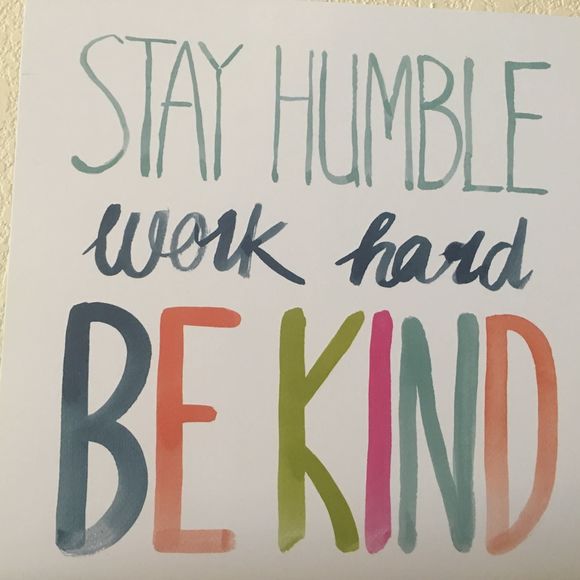 STAY HUMBLE
work hard
BE KIND